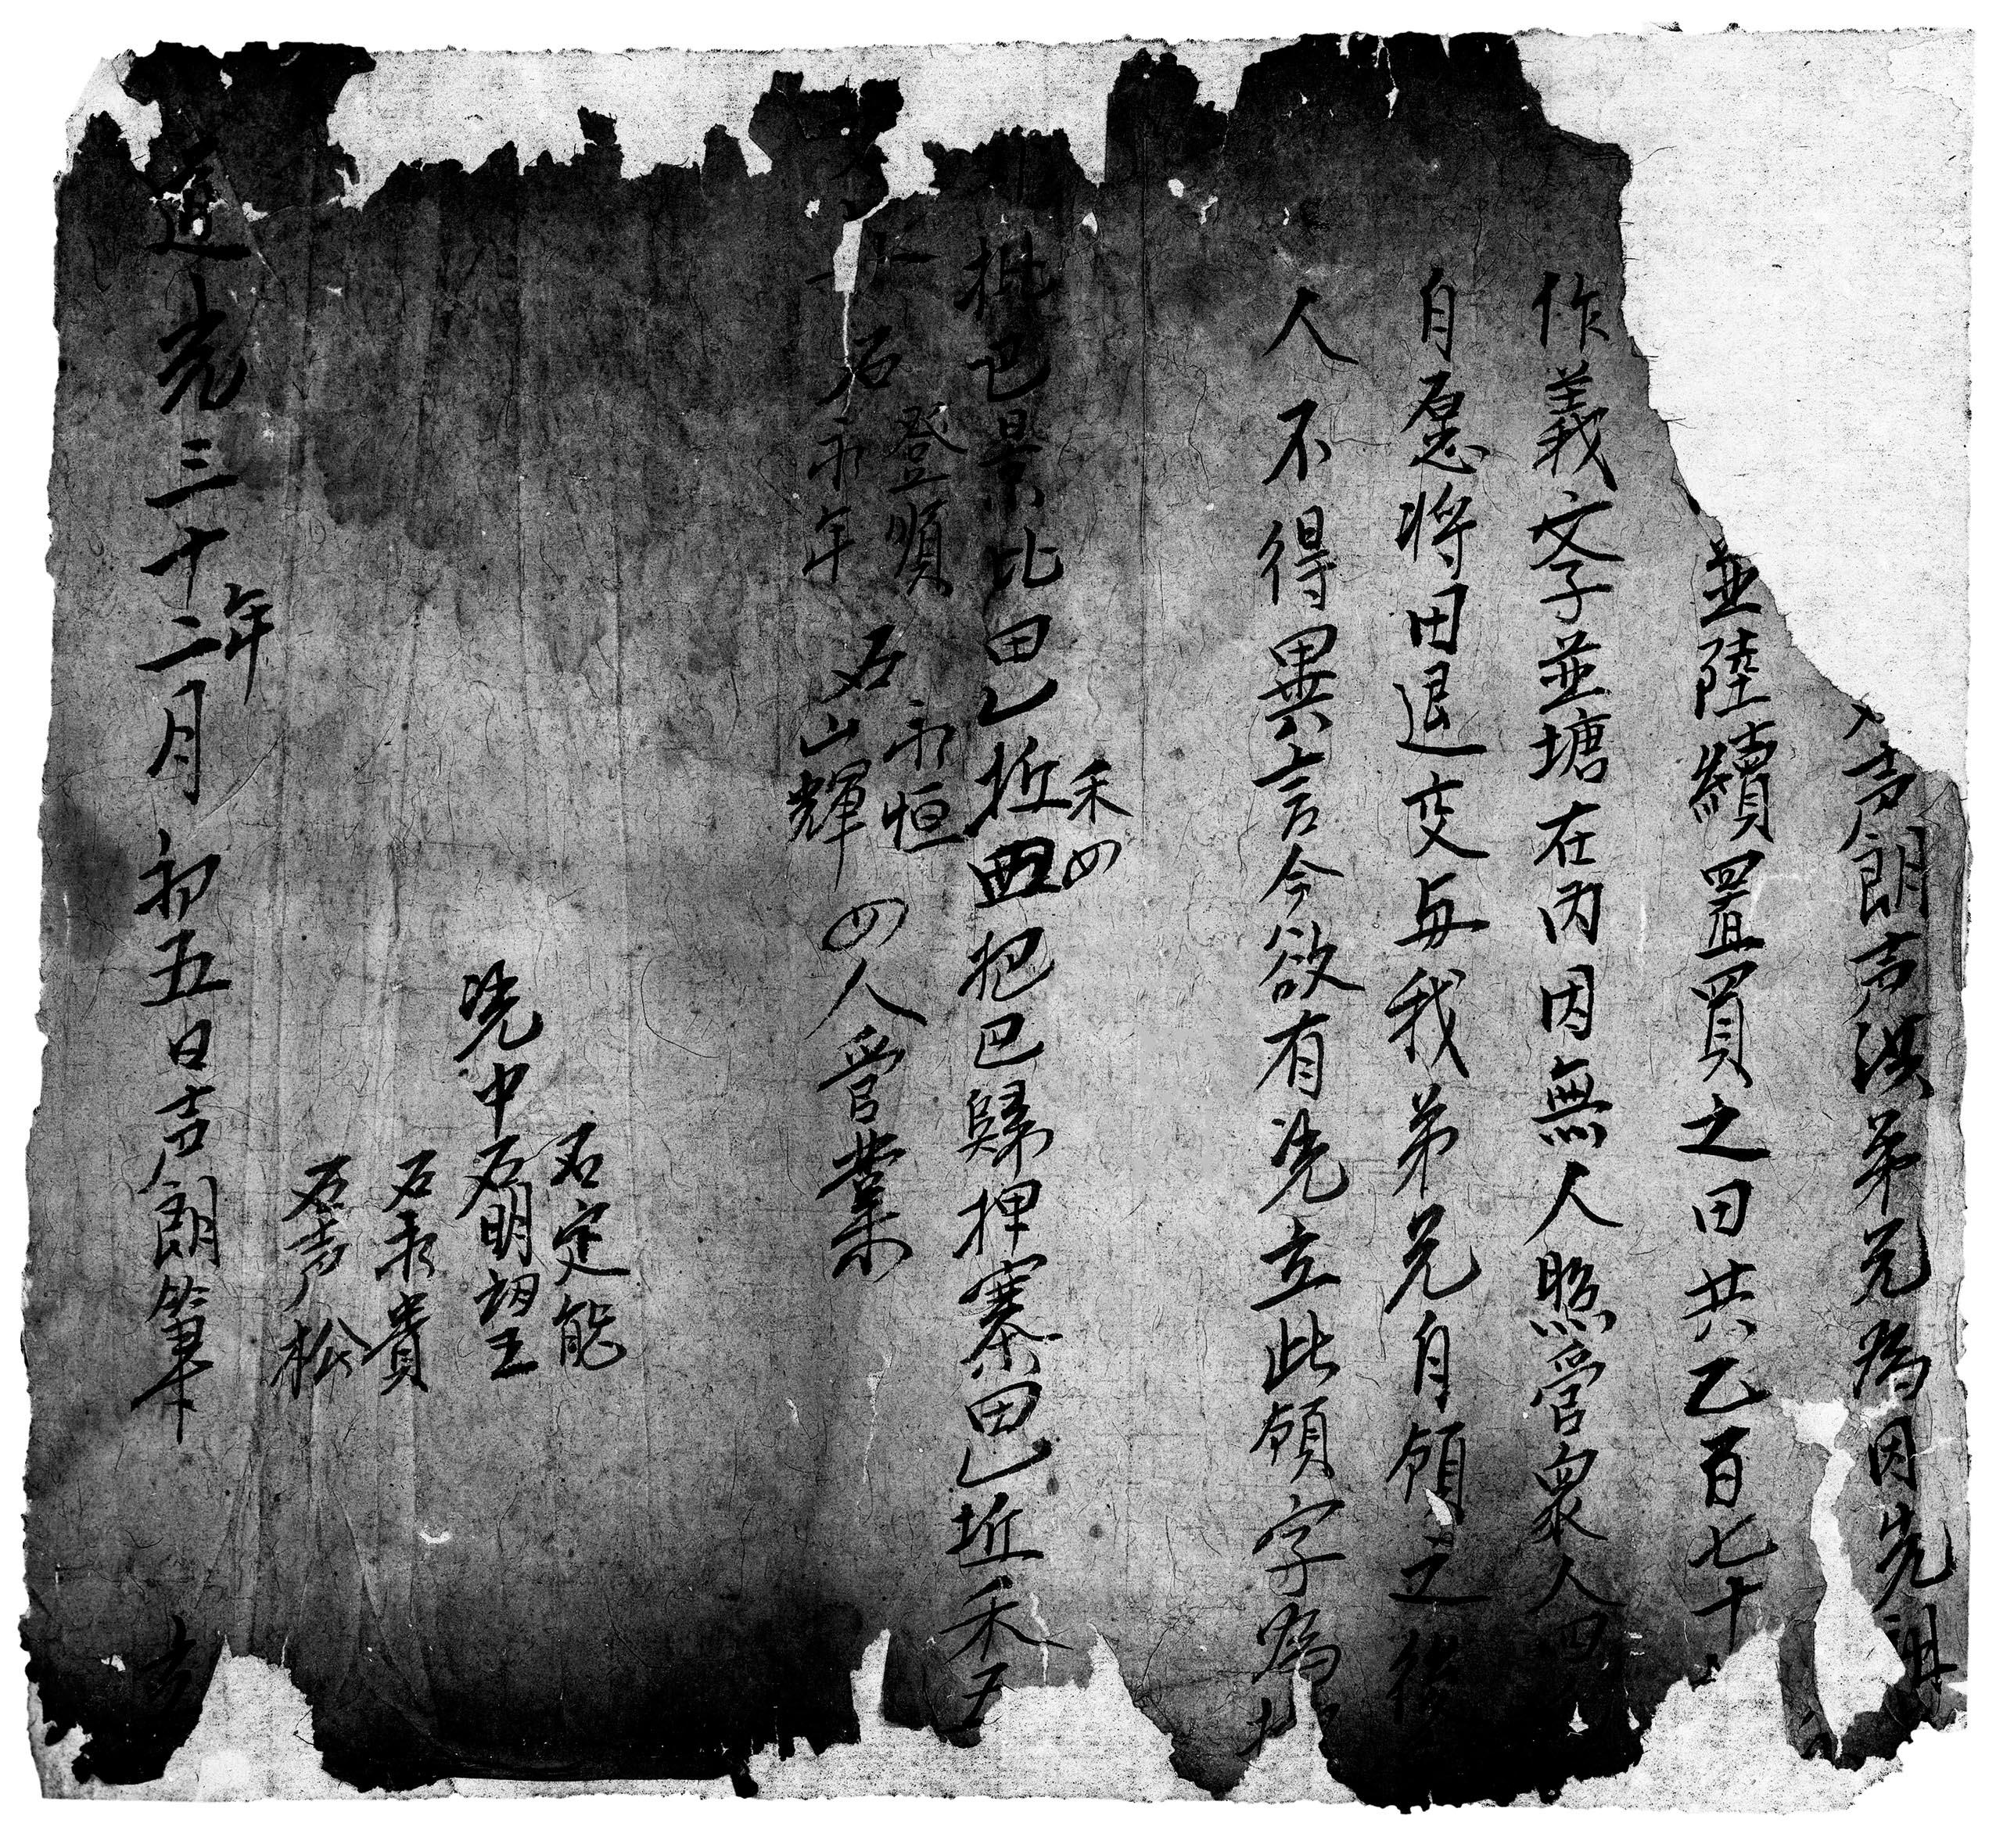 声朗声洪弟兄為因先祖
並陸續置買之田共乙百七十
作義文字並塘在内因無人照管衆人四
自愿将田退交与我弟兄自領之後
人不得異言今欲有凭立此領字為
批巴景比田乚坵禾四把巴歸押寨田乚坵禾五
石登順 石永年 石永恒 石山輝 四人管業
石定能
凭中石明望
石永貴
石声松
道光三十年二月初五日声朗筆 立